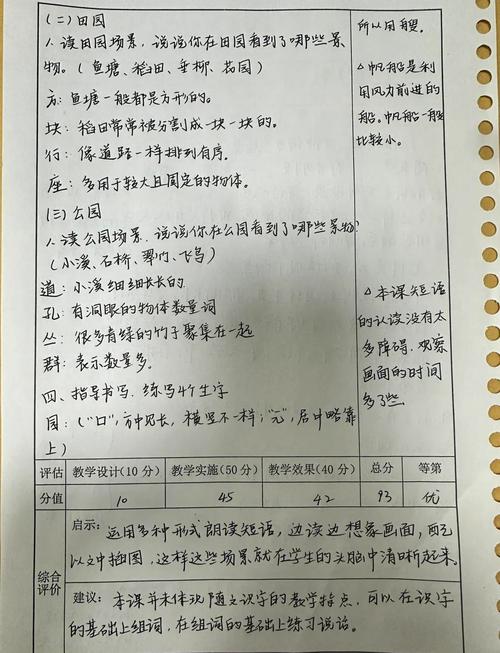 (二)田园
1、读田园场景,说说你在田园看到了哪些景
物。(鱼塘、稻田、垂柳、花园)
方:鱼塘一般都是方形的。
块:稻田常常被分割成一块一块的。
行:像道路一样排列有序。
座:多用于较大且固定的物体。
(三)公园
1、读公园场景,说说你在公园看到了哪些景物?
(小溪、石桥、翠竹、飞鸟)
道:小溪细细长长的.
孔:有洞眼的物体数量词
丛:很多青绿的竹子聚集在一起
群:表示数量多。
四、指导书写,练写4个生字
园:("囗",方中见长,横竖不一样;"元",居中略靠
上)
所以用艘。
△帆船是利
用风力前进的
船。帆船一般
比较小。
△本课短语
的认读没有太
多障碍,观察
画面的时间
多了些.
评估 教学设计(10分) 教学实施(50分) 教学效果(40分) 总分 等第
分值 10 45 42 93 优
综合
评价
启示:运用多种形式朗读短语,边读边想象画面,配
以文中插图,这样这些场景就在学生的头脑中清晰起来.
建议:本课并未体现随文识字的教学特点,可以在识字
的基础上组词,在组词的基础上练习说话。